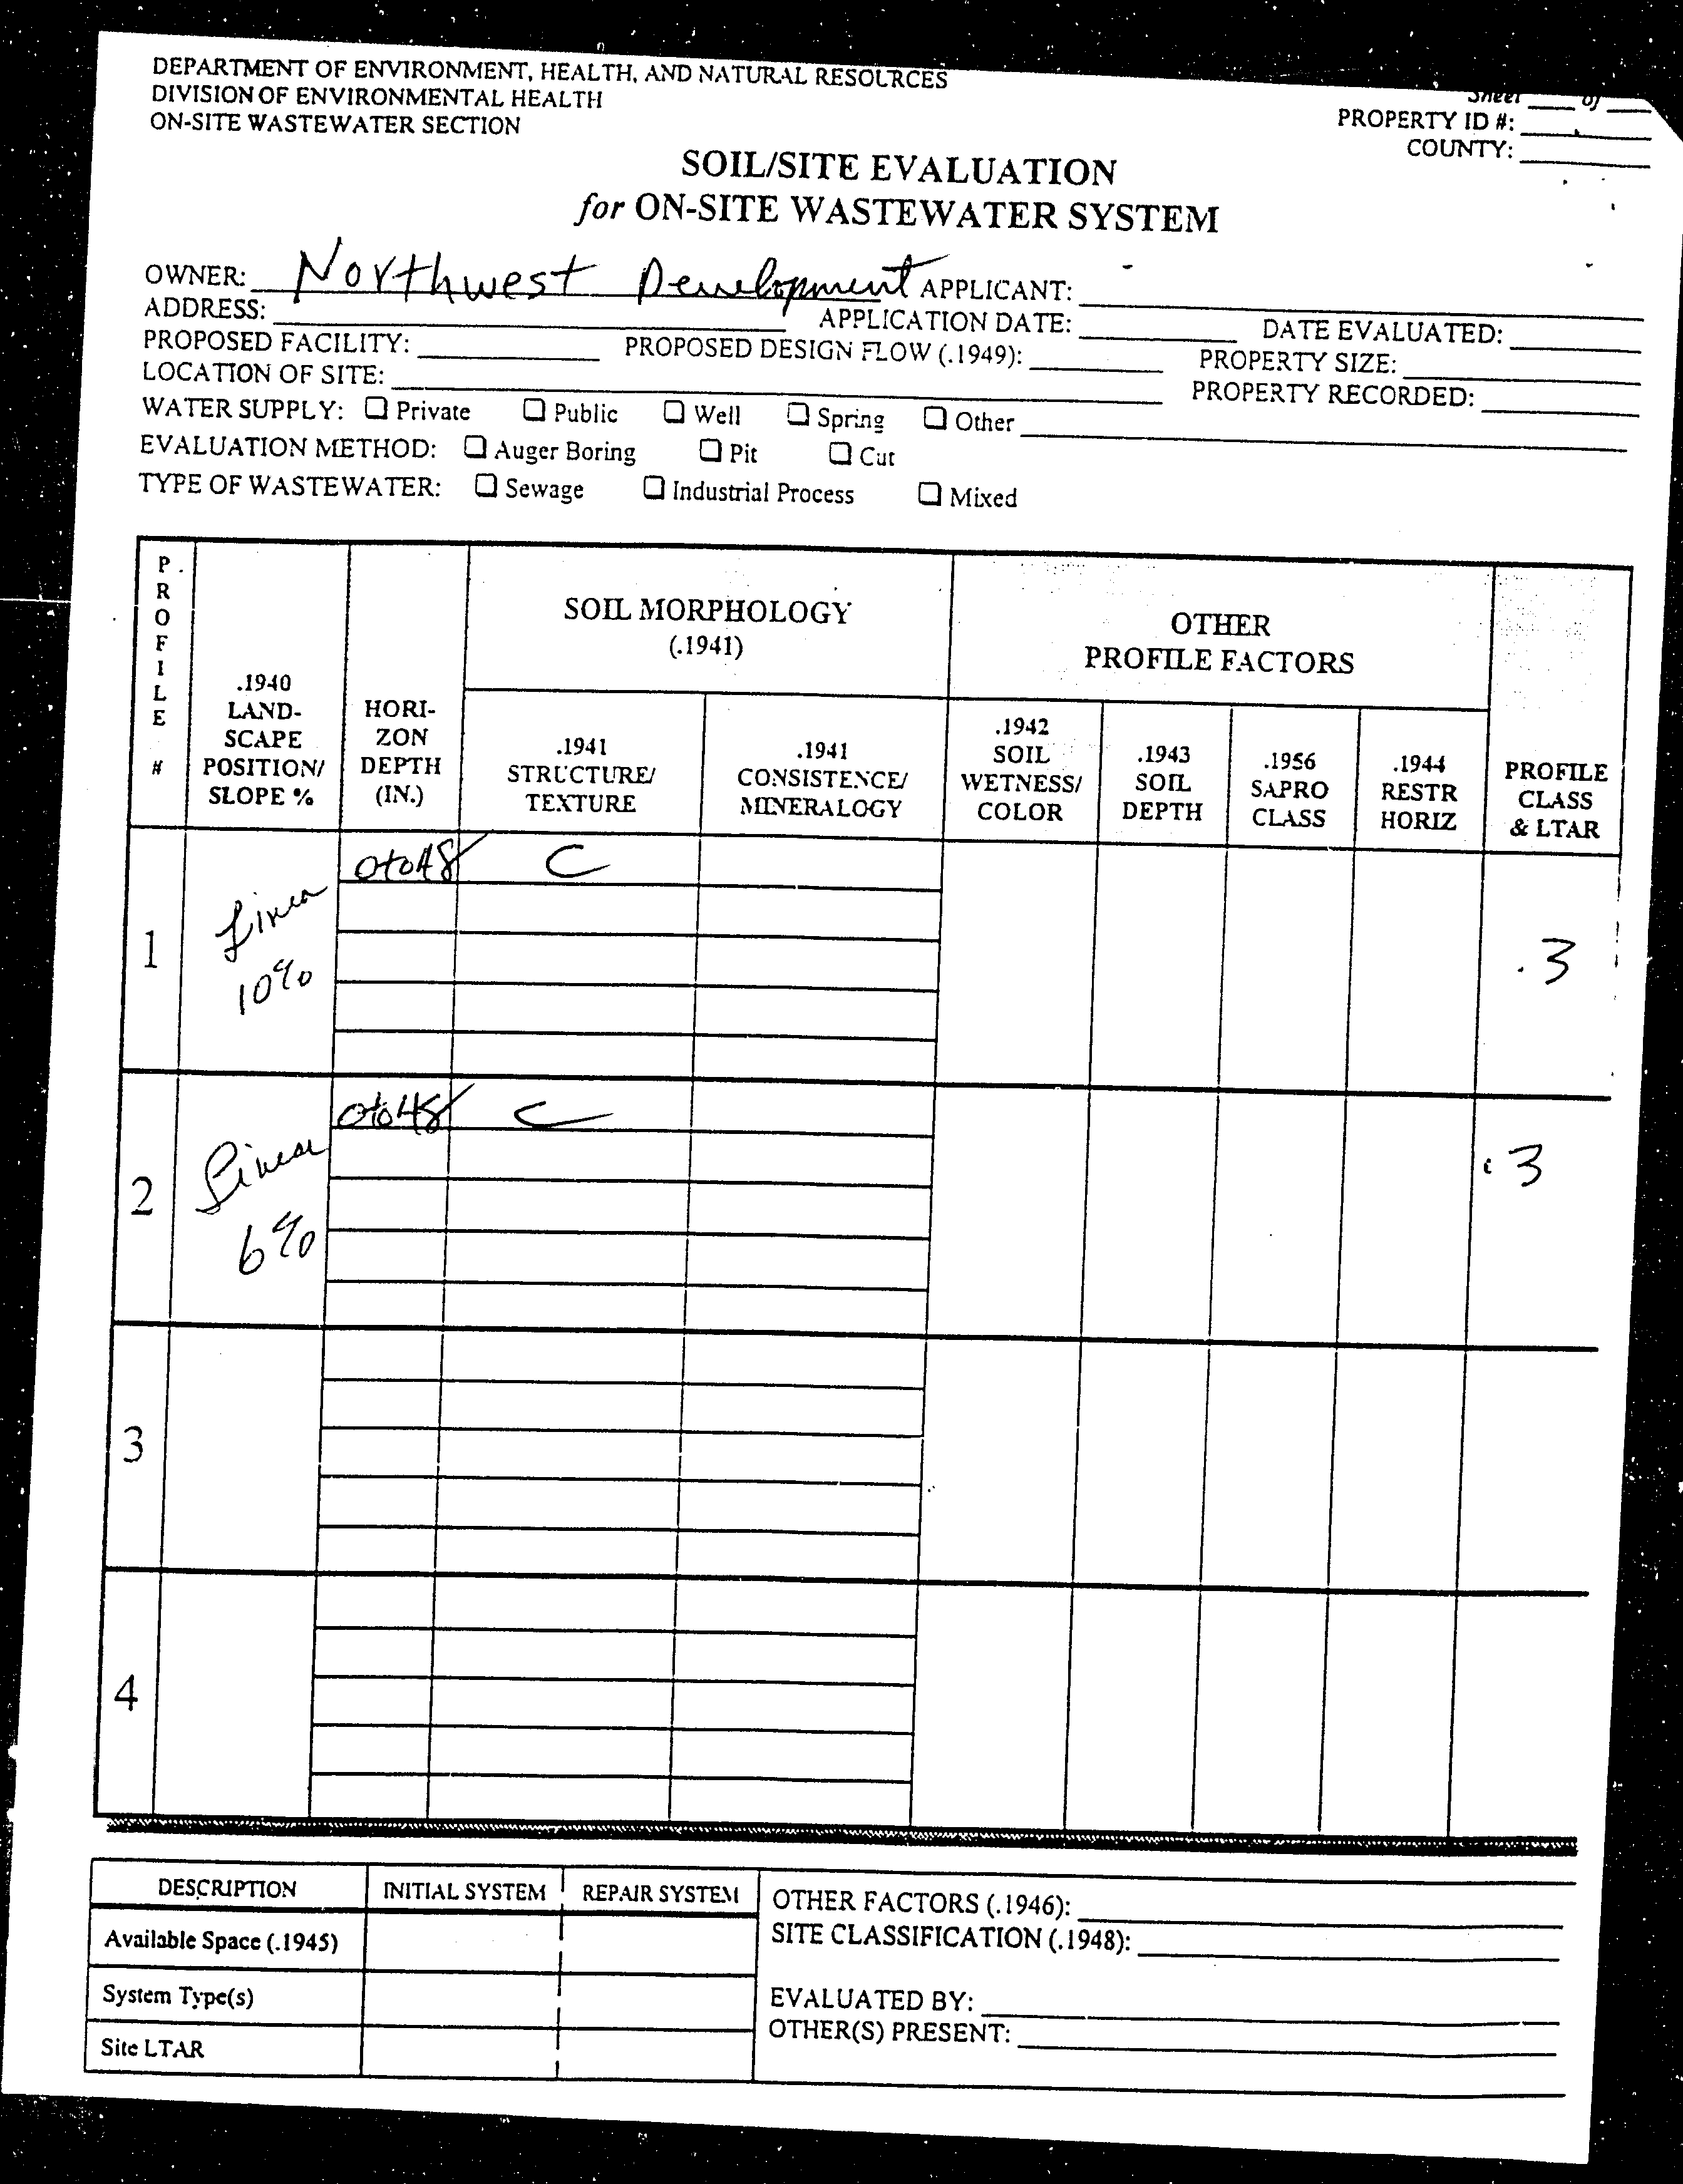 DEPARTMENT OF ENVIRONMENT, HEALTH, AND NATURAL RESOURCES
DIVISION OF ENVIRONMENTAL HEALTH
ON-SITE WASTEWATER SECTION
Sheet ____ of ____
PROPERTY ID #:
COUNTY:
SOIL/SITE EVALUATION
for ON-SITE WASTEWATER SYSTEM
OWNER: Northwest Development APPLICANT:
ADDRESS: APPLICATION DATE: DATE EVALUATED:
PROPOSED FACILITY: PROPOSED DESIGN FLOW (.1949): PROPERTY SIZE:
LOCATION OF SITE: PROPERTY RECORDED:
WATER SUPPLY: ☐ Private ☐ Public ☐ Well ☐ Spring ☐ Other
EVALUATION METHOD: ☐ Auger Boring ☐ Pit ☐ Cut
TYPE OF WASTEWATER: ☐ Sewage ☐ Industrial Process ☐ Mixed
PROFILE #
.1940
LAND-
SCAPE
POSITION/
SLOPE %
HORI-
ZON
DEPTH
(IN.)
SOIL MORPHOLOGY
(.1941)
.1941
STRUCTURE/
TEXTURE
.1941
CONSISTENCE/
MINERALOGY
OTHER
PROFILE FACTORS
.1942
SOIL
WETNESS/
COLOR
.1943
SOIL
DEPTH
.1956
SAPRO
CLASS
.1944
RESTR
HORIZ
PROFILE
CLASS
& LTAR
0 to 48 C
1 Linea .3
10%
0 to 48 C
2 Linear .3
6%
3
4
DESCRIPTION INITIAL SYSTEM REPAIR SYSTEM
Available Space (.1945)
System Type(s)
Site LTAR
OTHER FACTORS (.1946):
SITE CLASSIFICATION (.1948):
EVALUATED BY:
OTHER(S) PRESENT: